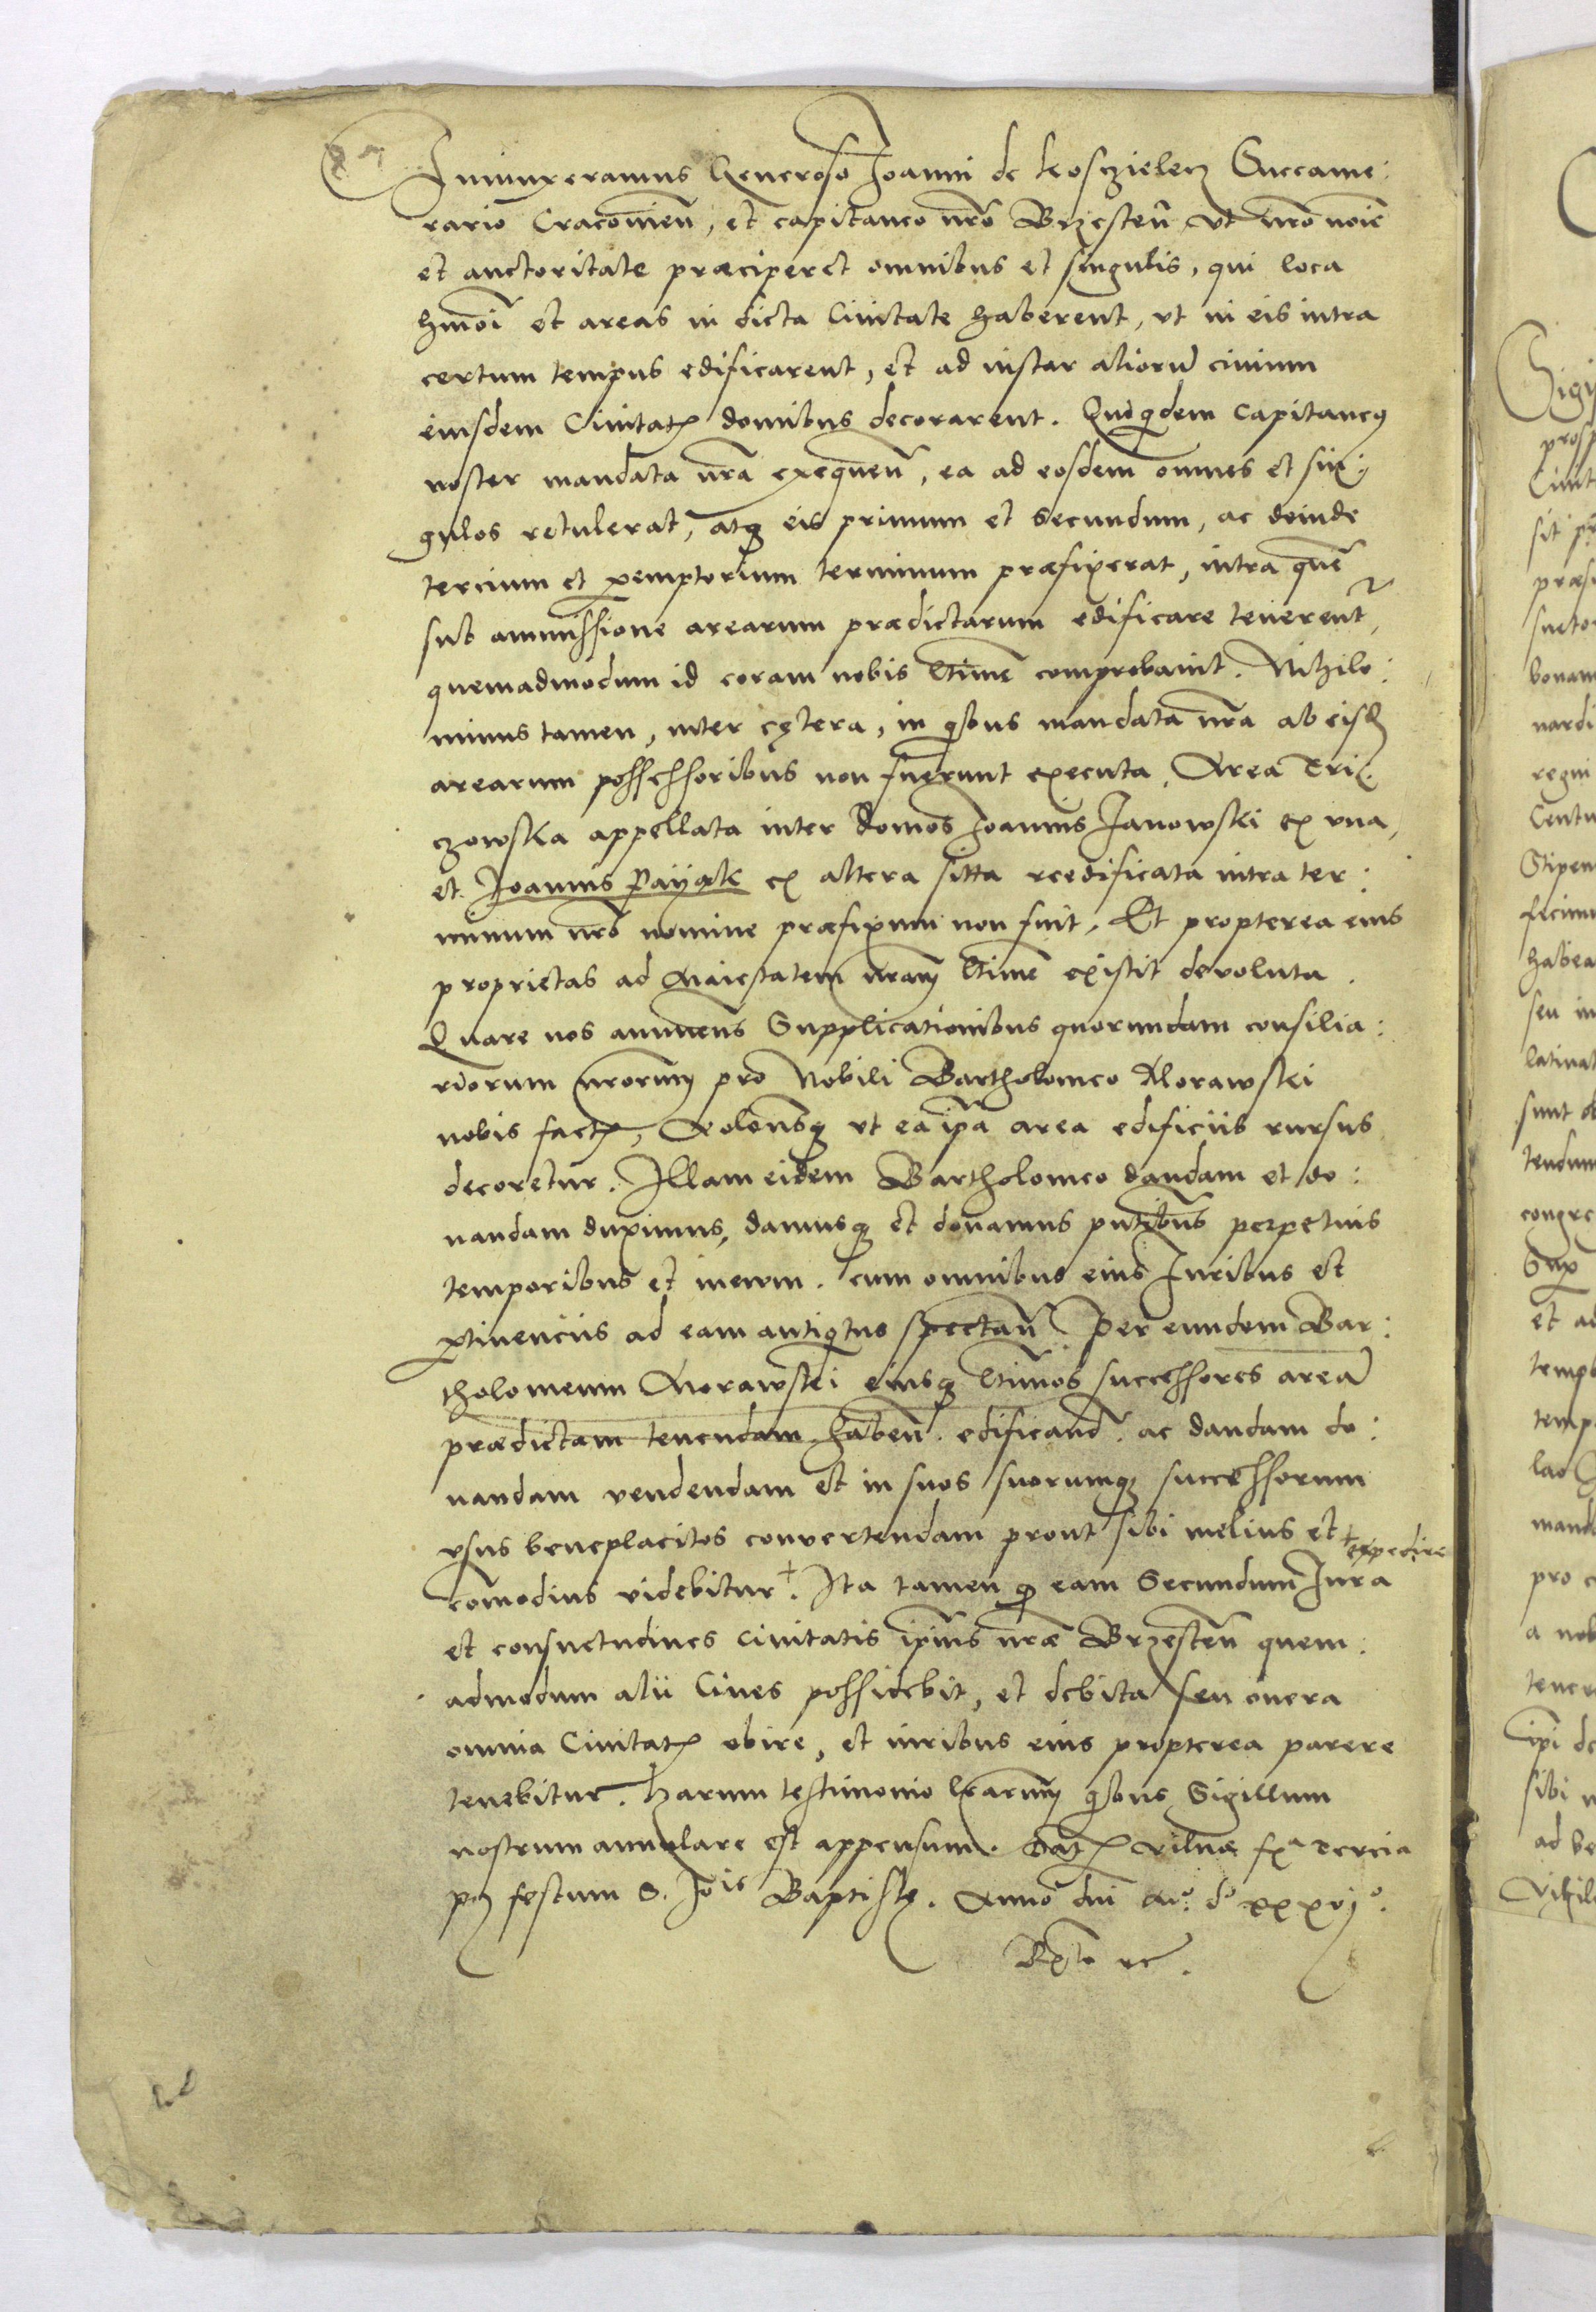 Iniunxeramus Generoso Joanni de Koszielecz Succame:
rario Cracovien̄, et capitaneo nr̄o Brzesten̄ ut nr̄o noīe
et auctoritate præciperet omnibus et singulis, qui loca
hmōi et areas in dicta Civitate haberent, ut in eis intra
certum tempus edificarent, et ad instar aliorū civium
eiusdem Civitatꝭ domibus decorarent. Quiqdem Capitaneꝰ
noster mandata nr̄a exequen̄, ea ad eosdem omnes et sin:
gulos retulerat, atqꝫ eis primum et Secundum, ac deinde
tercium et ꝑemptorium terminum præfixerat, intra quē
sub ammissione arearum prædictarum edificare tenerent̄,
quemadmodum id coram nobis lt̄ime comprobavit. Nihilo:
minus tamen, inter cętera, in qibus mandata nr̄a ab eisd̄
arearum possessoribus non fuerunt executa, Area Tri:
czowska appellata inter domos Joannis Janowski ex una,
et Joannis Payąk ex altera sitta reedificata intra ter:
minum nr̄o nomine præfixum non fuit, Et propterea eius
proprietas ad Maiestatem nr̄am lt̄ime existit devoluta.
Quare nos annuen̄s Supplicationibus quorundam consilia:
riorum nr̄orum pro Nobili Bartholomeo Morawski
nobis factꝭ, Volen̄sqꝫ ut ea ip̄a area edificiis rursus
decoretur. Illam eidem Bartholomeo dandam et do:
nandam duximus, damusqꝫ et donamus pn̄tibus perpetuis
temporibus et in ewm. cum omnibus eius Iuribus et
ꝑtinenciis ad eam antiqitus spectan̄ Per eundem Bar:
tholomeum Morawski eiusqꝫ lt̄imos successores areā
prædictam tenendam haben̄. edificand̄. ac dandam do:
nandam vendendam et in suos suorumqꝫ successorum
usus beneplacitos convertendam prout sibi melius et + expedire
comodius videbitur +. Ita tamen ꝙ eam Secundum Iura
et consuetudines Civitatis ip̄ius nr̄æ Brzesten̄ quem:
admodum alii Cives possidebit, et debita seu onera
omnia Civitatꝭ obire, et iuribus eius propterea parere
tenebitur. Harum testimonio lr̄arum qibus Sigillum
nostrum annulare est appensum. Datꝭ Vilnæ fꝭᵃ tercia
pꝰ festum S. Joīs Baptistę. Anno dn̄i Mᵒ. dᵒ xxxvjᵒ.